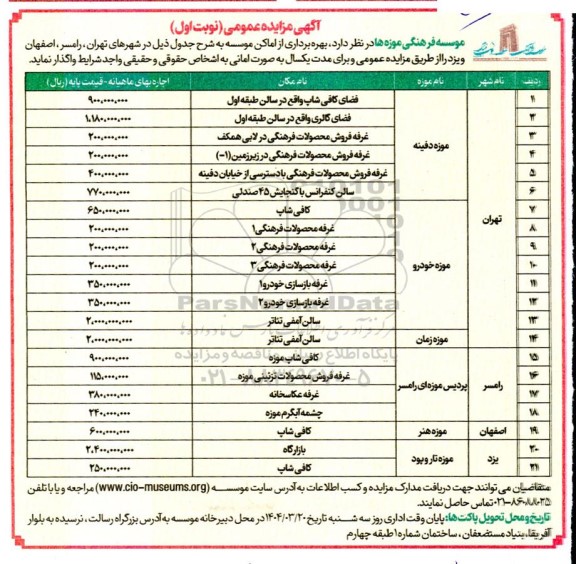 آگهی مزایده عمومی (نوبت اول)
موسسه فرهنگی موزه‌ها در نظر دارد، بهره برداری از اماکن موسسه به شرح جدول ذیل در شهرهای تهران، رامسر، اصفهان
ویزد را از طریق مزایده عمومی و برای مدت یکسال به صورت امانی به اشخاص حقوقی و حقیقی واجد شرایط واگذار نماید.
ردیف نام شهر نام موزه نام مکان اجاره بهای ماهیانه - قیمت پایه (ریال)
۱ تهران موزه دفینه فضای کافی شاپ واقع در سالن طبقه اول ۹۰۰,۰۰۰,۰۰۰
۲ فضای گالری واقع در سالن طبقه اول ۱,۱۸۰,۰۰۰,۰۰۰
۳ غرفه فروش محصولات فرهنگی در لابی همکف ۲۰۰,۰۰۰,۰۰۰
۴ غرفه فروش محصولات فرهنگی در زیرزمین (۱-) ۲۰۰,۰۰۰,۰۰۰
۵ غرفه فروش محصولات فرهنگی با دسترسی از خیابان دفینه ۴۰۰,۰۰۰,۰۰۰
۶ سالن کنفرانس با گنجایش ۴۵ صندلی ۷۷۰,۰۰۰,۰۰۰
۷ موزه خودرو کافی شاپ ۶۵۰,۰۰۰,۰۰۰
۸ غرفه محصولات فرهنگی ۱ ۲۰۰,۰۰۰,۰۰۰
۹ غرفه محصولات فرهنگی ۲ ۲۰۰,۰۰۰,۰۰۰
۱۰ غرفه محصولات فرهنگی ۳ ۲۰۰,۰۰۰,۰۰۰
۱۱ غرفه بازسازی خودرو ۱ ۳۵۰,۰۰۰,۰۰۰
۱۲ غرفه بازسازی خودرو ۲ ۳۵۰,۰۰۰,۰۰۰
۱۳ سالن آمفی تئاتر ۲,۰۰۰,۰۰۰,۰۰۰
۱۴ موزه زمان سالن آمفی تئاتر ۲,۰۰۰,۰۰۰,۰۰۰
۱۵ رامسر پردیس موزه ای رامسر کافی شاپ موزه ۹۰۰,۰۰۰,۰۰۰
۱۶ غرفه فروش محصولات تزئینی موزه ۱۱۵,۰۰۰,۰۰۰
۱۷ غرفه عکاسخانه ۳۸۰,۰۰۰,۰۰۰
۱۸ چشمه آبگرم موزه ۲۴۰,۰۰۰,۰۰۰
۱۹ اصفهان موزه هنر کافی شاپ ۶۰۰,۰۰۰,۰۰۰
۲۰ یزد موزه تار و پود بازارگاه ۲,۴۰۰,۰۰۰,۰۰۰
۲۱ کافی شاپ ۲۵۰,۰۰۰,۰۰۰
متقاضیان می توانند جهت دریافت مدارک مزایده و کسب اطلاعات به آدرس سایت موسسه (www.cio-museums.org) مراجعه و یا با تلفن
تماس حاصل نمایند.
تاریخ و محل تحویل پاکت‌ها: پایان وقت اداری روز سه شنبه تاریخ ۱۴۰۴/۰۳/۲۰ در محل دبیرخانه موسسه به آدرس بزرگراه رسالت، نرسیده به بلوار
آفریقا، بنیاد مستضعفان، ساختمان شماره ۱ طبقه چهارم
ParsNamadData
پایگاه اطلاع رسانی مناقصه و مزایده